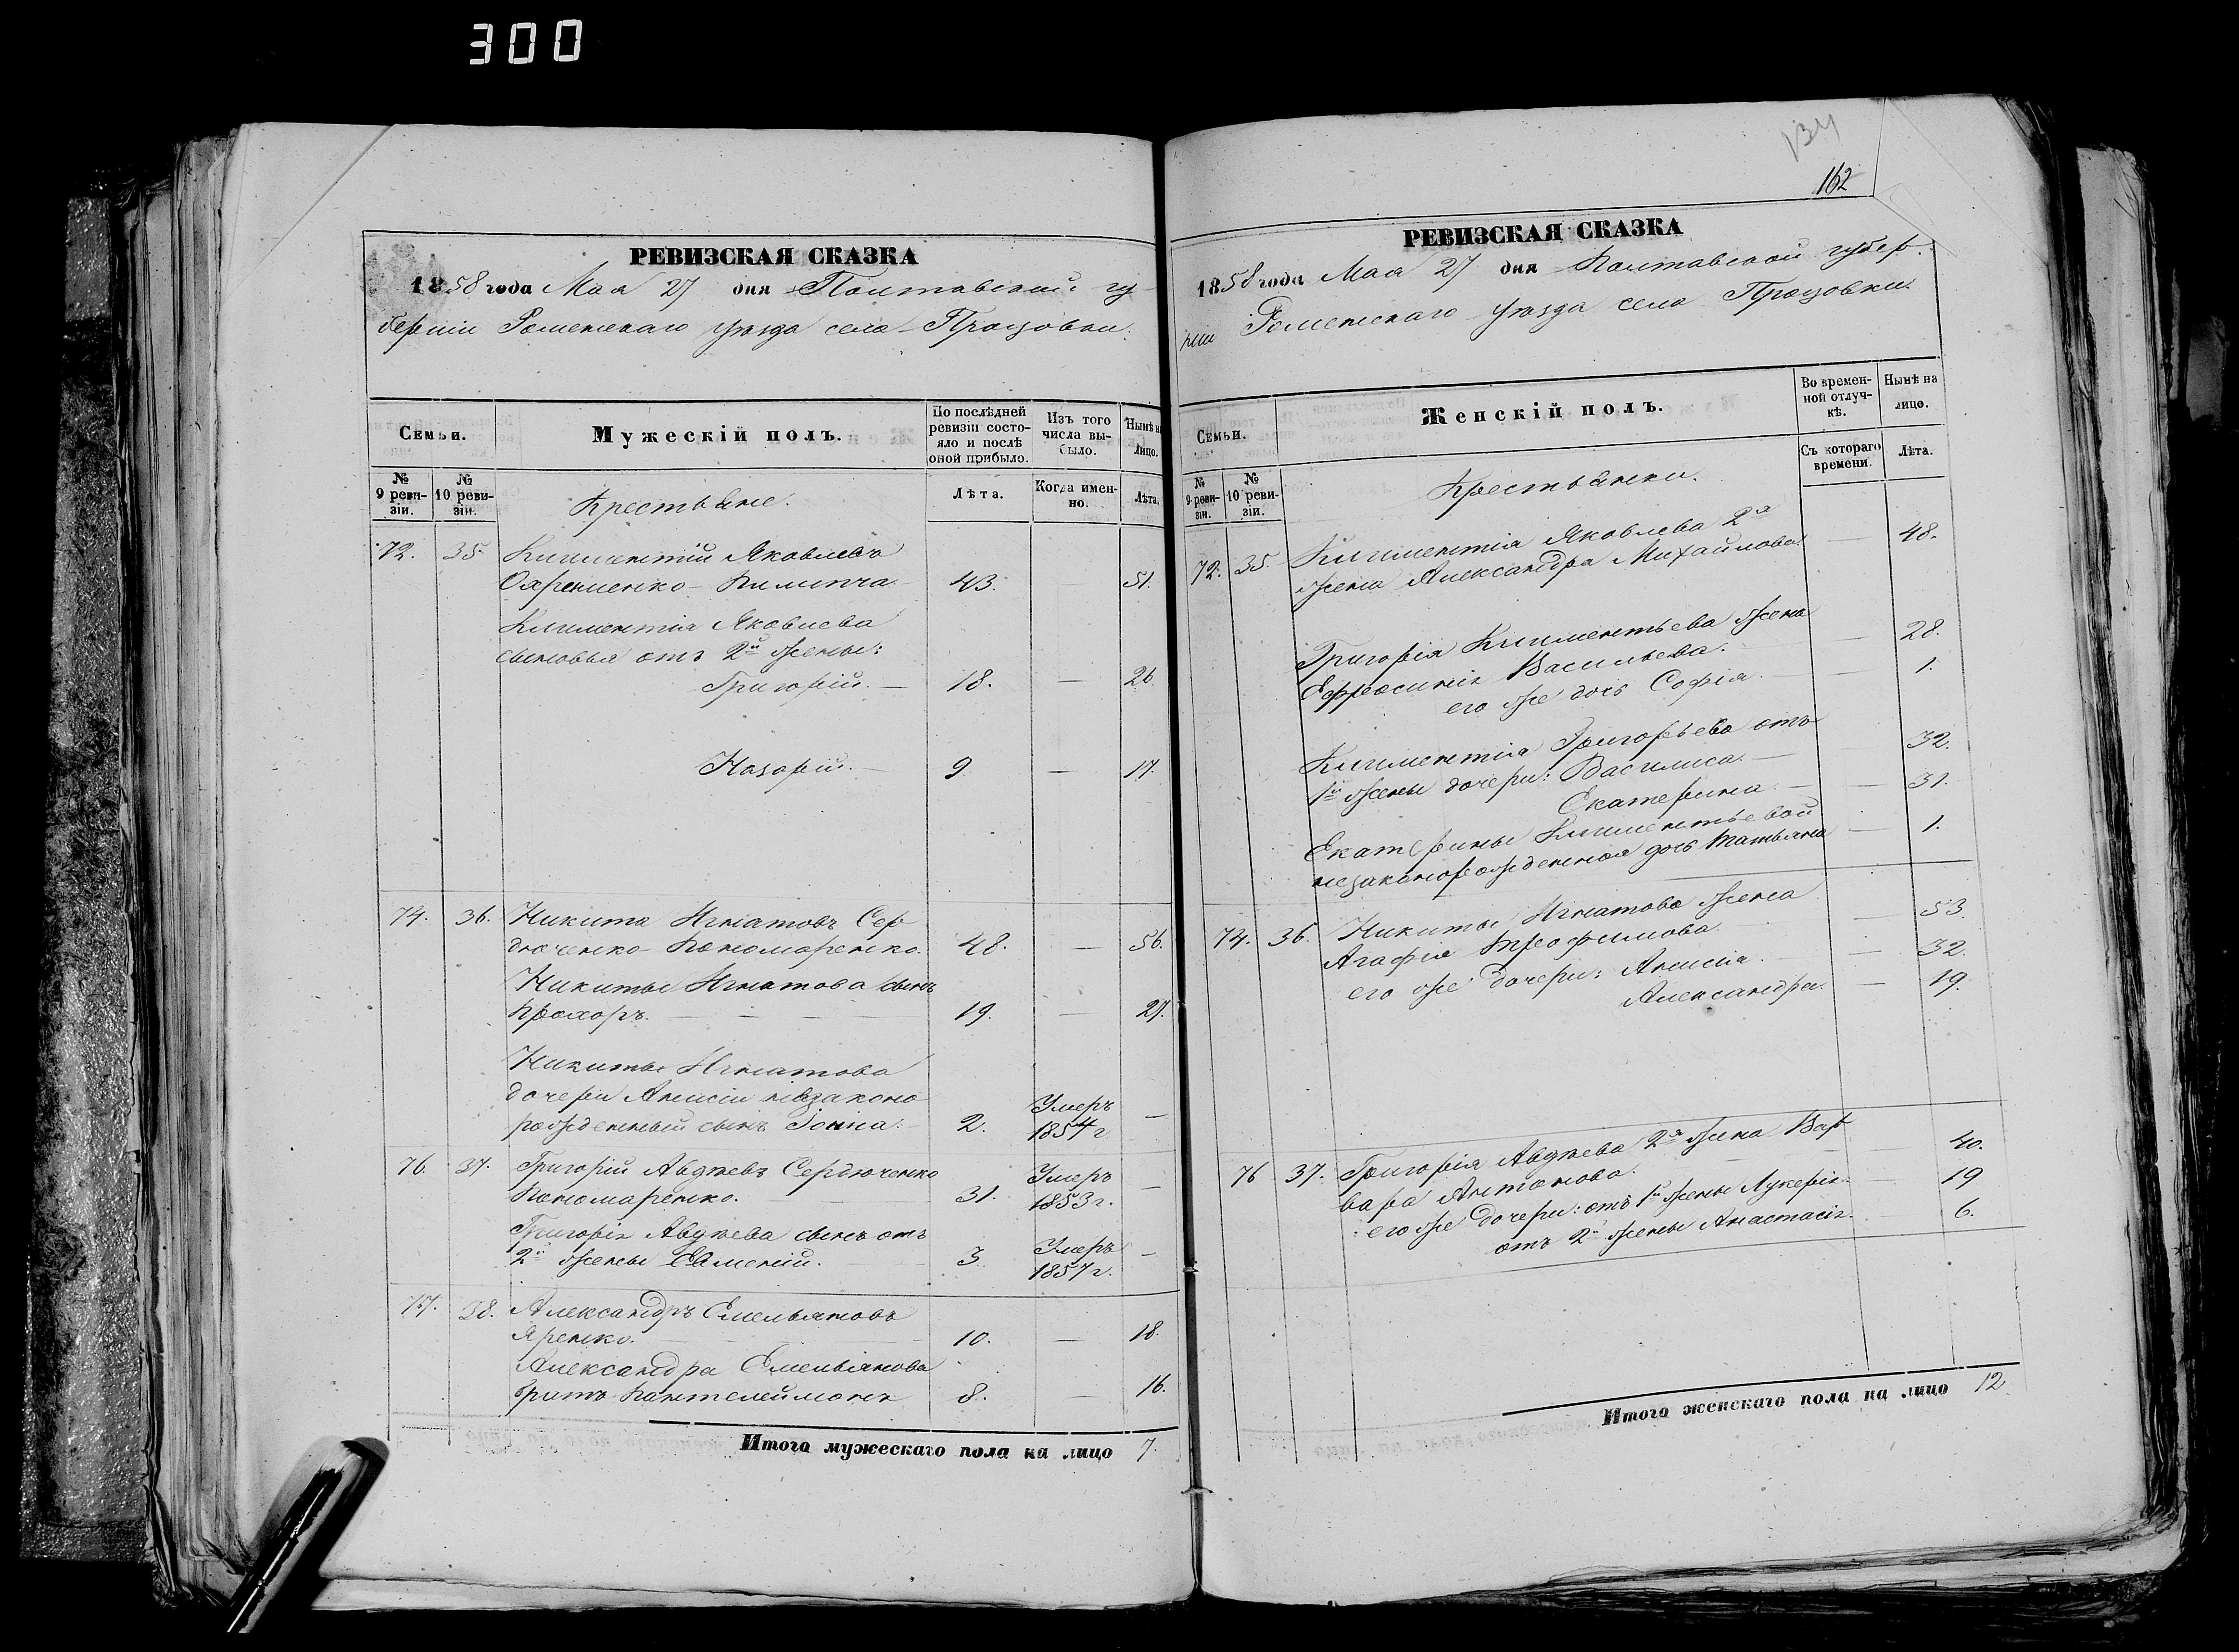 300
РЕВИЗСКАЯ СКАЗКА
1858 года Мая 27 дня Полтавской гу-
берніи Роменскаго уѣзда села Процовки.
Семьи.
Мужескій полъ.
По послѣдней ревизіи состояло и послѣ оной прибыло.
Изъ того числа выбыло.
Нынѣ на лицо.
№ 9 ревизіи.
№ 10 ревизіи.
Крестьяне.
Лѣта.
Когда именно.
Лѣта.
72. 35. Климентій Яковлевъ
Охременко 43. — 51.
Климентія Яковлева
сыновья отъ 2й жены:
Григорій. — 18. — 26.
Назарій. — 9 — 17.
74. 36. Никита Игнатовъ Сер
дюченко Пономаренко. 48. — 56.
Никиты Игнатова сынъ
Прохоръ. — 19. — 27.
Никиты Игнатова
дочери Анисіи незаконо
рожденный сынъ 2. Умеръ 1854 г. —
76. 37. Григорій Авдѣевъ Сердюченко
Пономаренко. 31. Умеръ 1853 г. —
Григорія Авдѣева сынъ отъ
2й жены Евменій. 3. Умеръ 1857 г. —
77. 38. Александръ Емельяновъ
Яренко. 10. — 18.
Александра Емельянова
братъ Пантелеймонъ 8. — 16.
Итого мужескаго пола на лицо 7.
134
162
РЕВИЗСКАЯ СКАЗКА
1858 года Мая 27 дня Полтавской губер-
ніи Роменскаго уѣзда села Процовки.
Семьи.
Женскій полъ.
Во временной отлучкѣ.
Нынѣ на лицо.
№ 9 ревизіи.
№ 10 ревизіи.
Крестьянки.
Съ котораго времени.
Лѣта.
72. 35. Климентія Яковлева 2я
жена Александра Михайлова. — 48.
Григорія Климентьева жена
Ефросинія Васильева. — 28.
его же дочь Софія. — 1.
Климентія Григорьева отъ
1й жены дочери: Василиса. — 32.
Екатерина. — 31.
Екатерины Климентьевой
незаконорожденная дочь Татьяна — 1.
74. 36. Никиты Игнатова жена
Агафія Трофимова. — 53.
его же дочери: Анисія. — 32.
Александра. — 19.
76 37. Григорія Авдѣева 2я жена Вар
вара Антонова. — 40.
его же дочери: отъ 1й жены Лукерія. 19
отъ 2й жены Анастасія. — 6.
Итого женскаго пола на лицо 12.